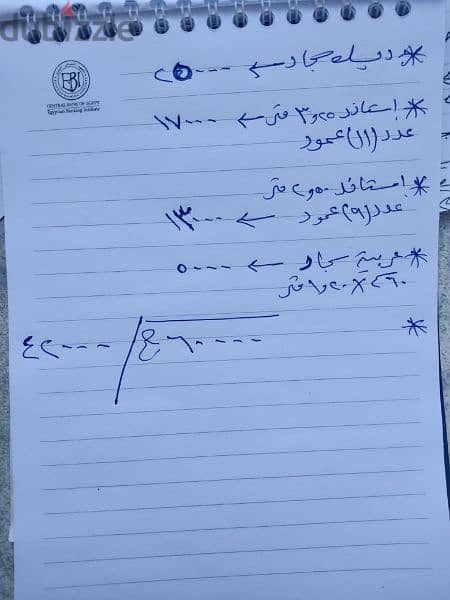 dubizzle
EBI
CENTRAL BANK OF EGYPT
Egyptian Banking Institute
* سجاد ← ٢٥٠٠٠
* استاند ٣,٢٥ متر ← ١٧٠٠٠
عدد (١١) عمود
* استاند ٢,٥٠ متر
عدد (٩) عمود ← ١٣٠٠٠
* عربية سجاد ← ٥٠٠٠
متر
* ٦٠٠٠٠ / ٤٢٠٠٠